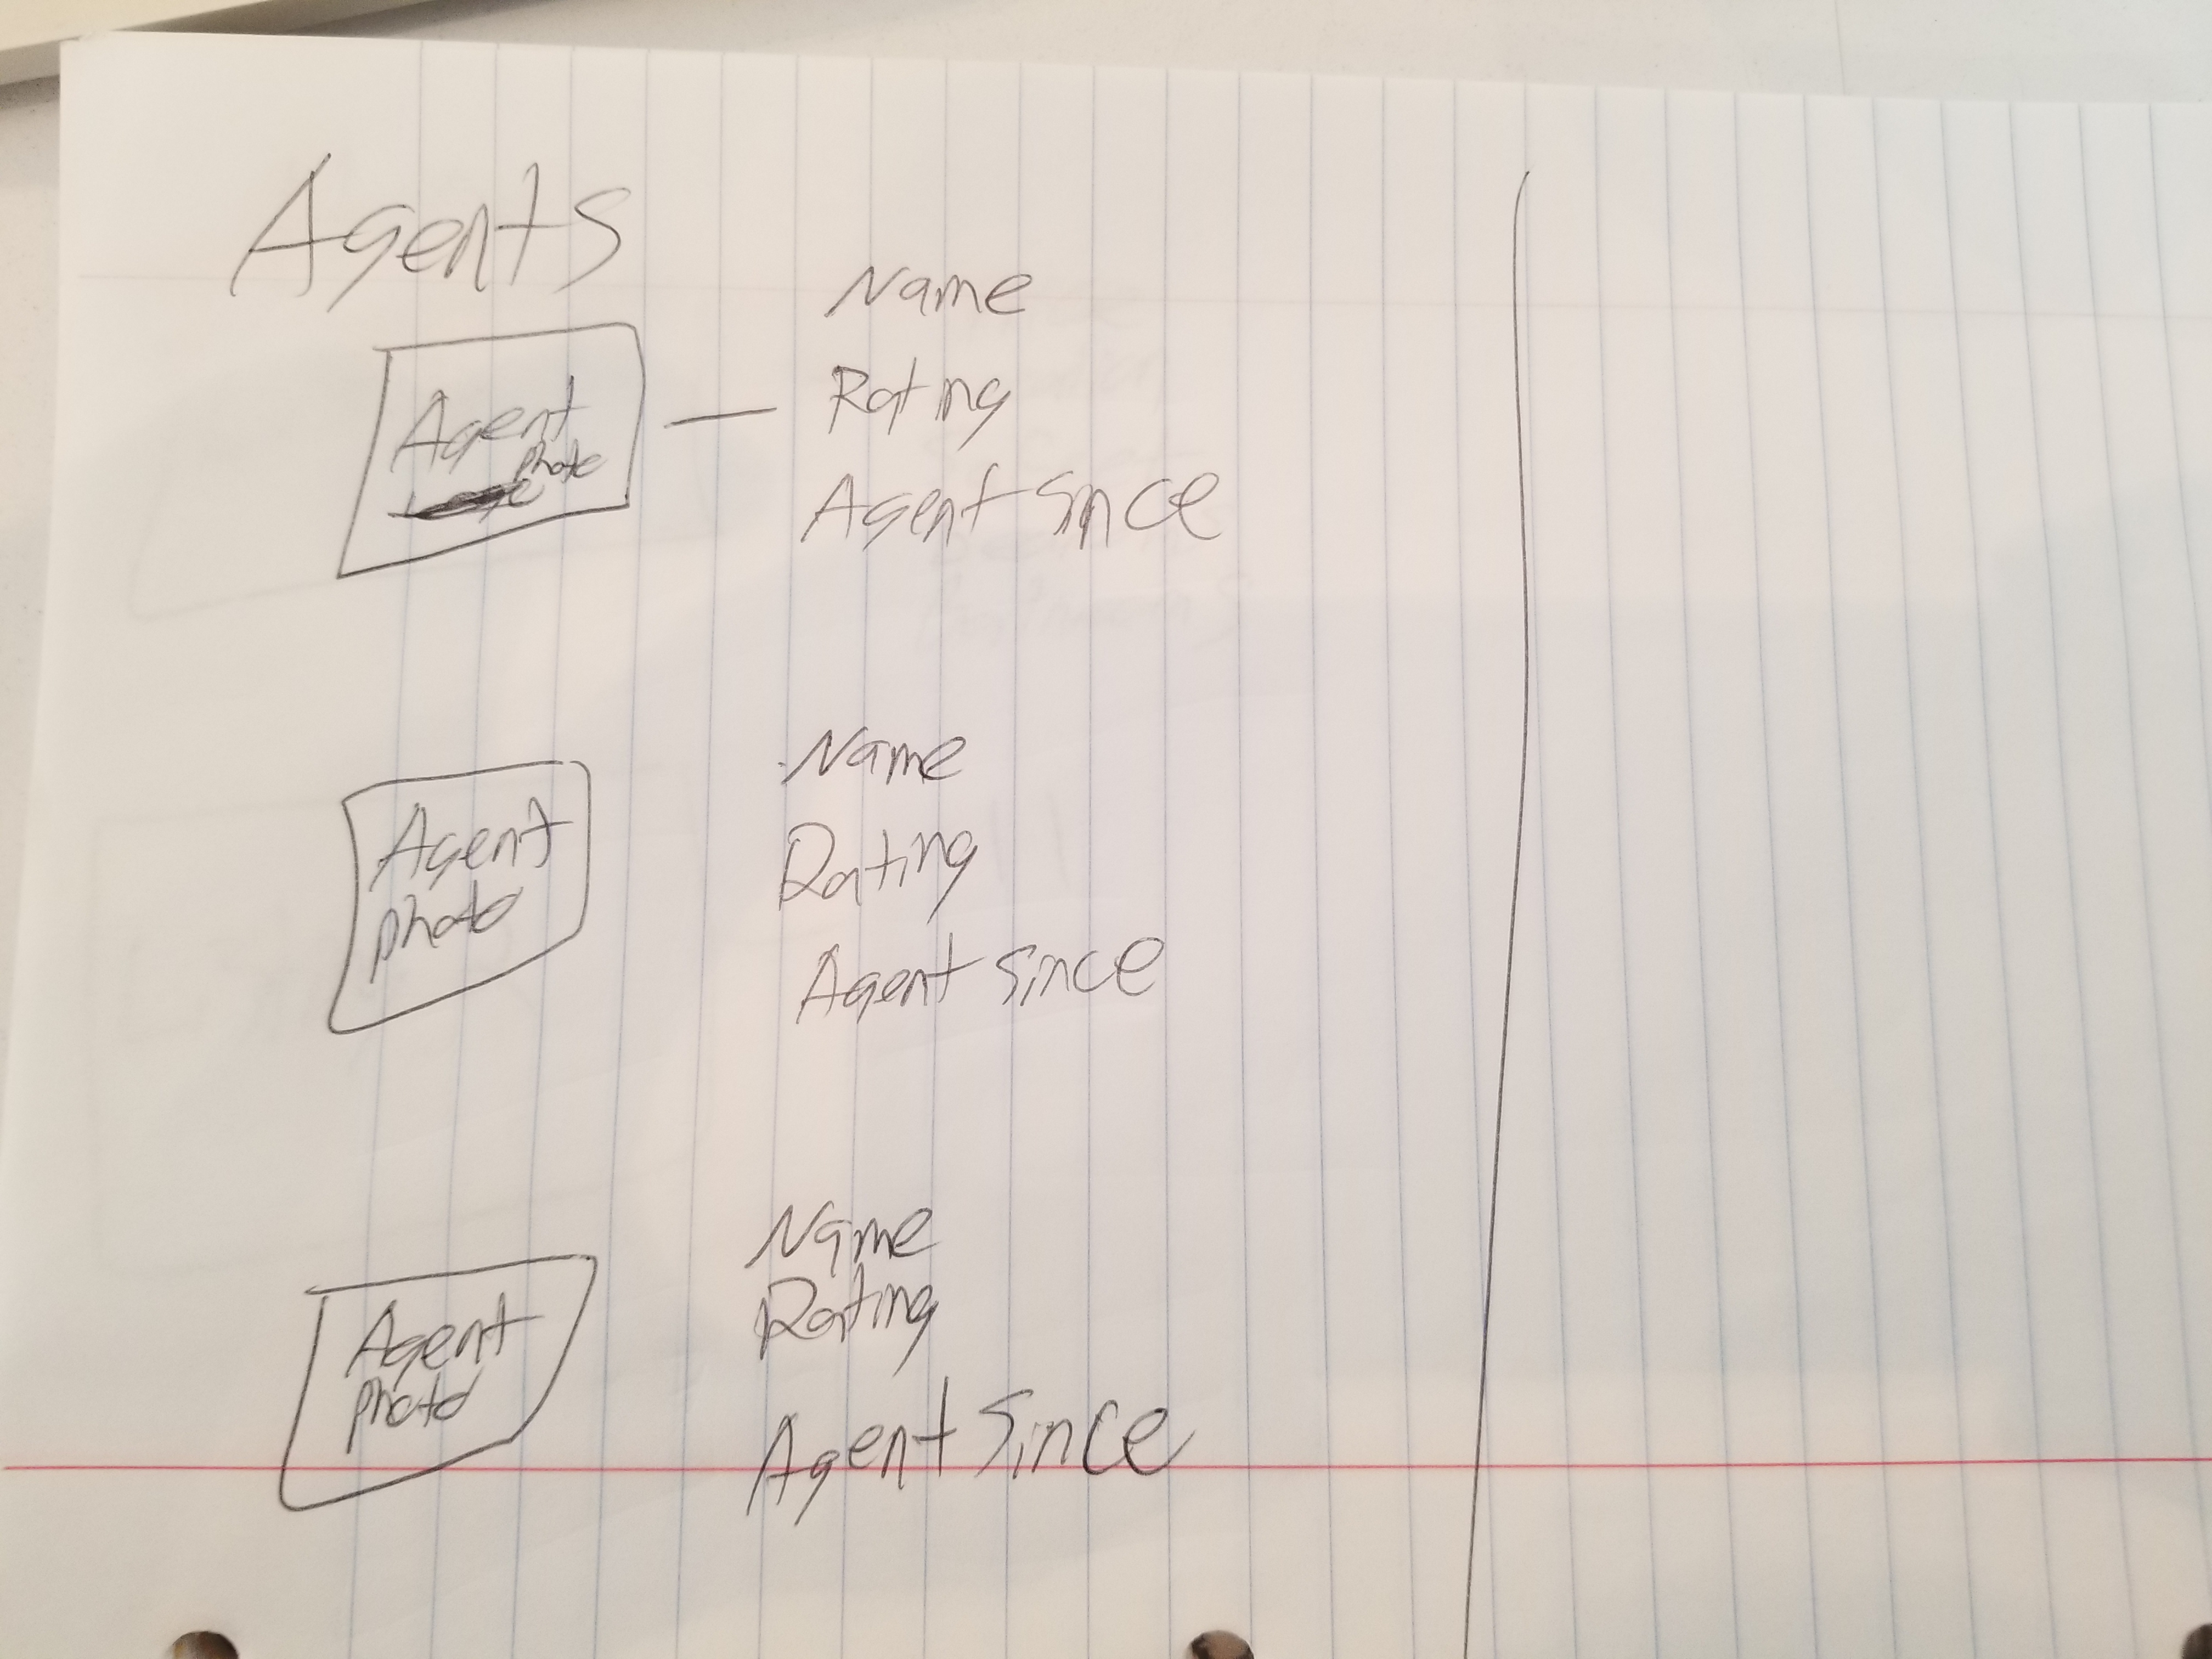 Agents
Agent
photo
Name
Rating
Agent Since
Agent
photo
Name
Rating
Agent Since
Agent
photo
Name
Rating
Agent Since